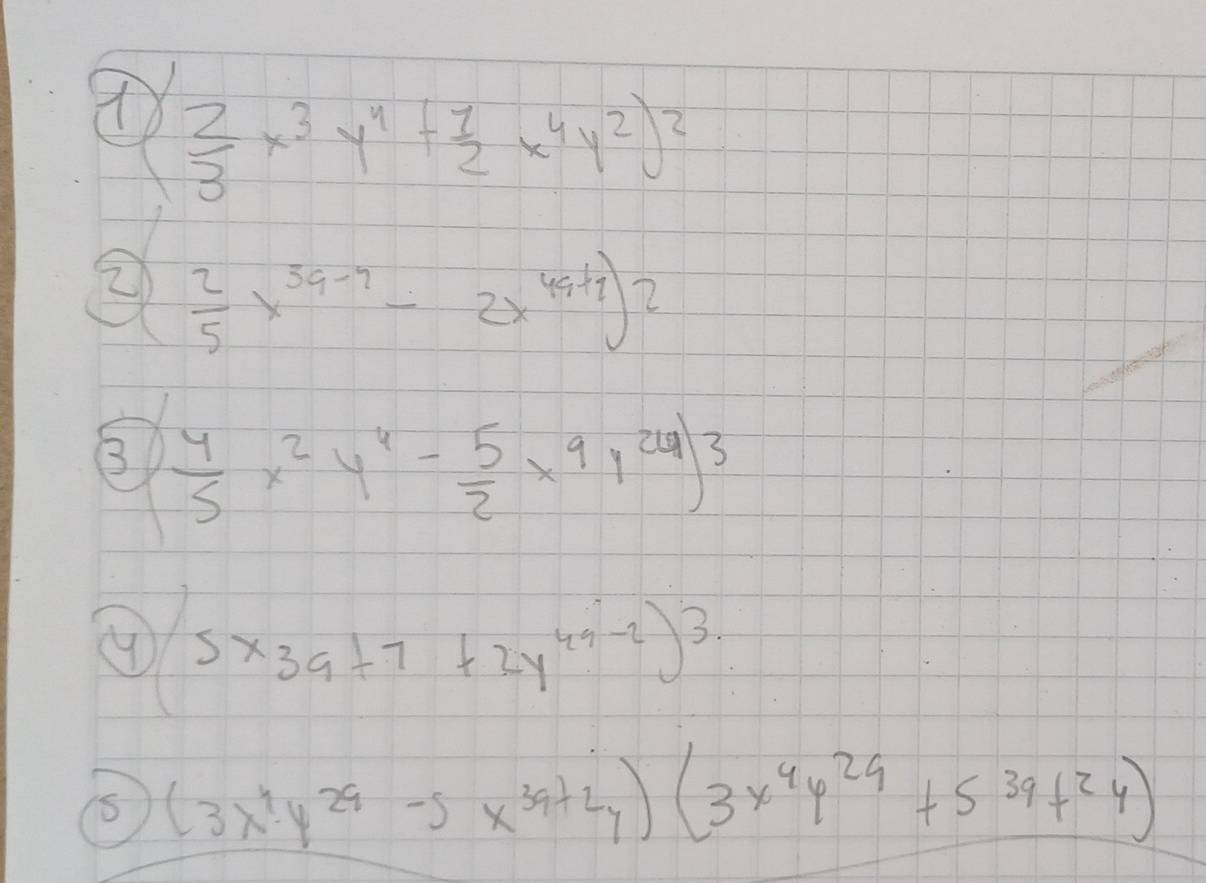 ① (2/3 x³ y⁴ + 1/2 x⁴ y²)²
② (2/5 x^(3a-4) - 2x^(4a+1))²
③ (4/5 x² y⁴ - 5/2 x^9 y)³
④ (5x3a+7 + 2y^(4a-2))³.
⑤ (3x⁴ y^(2a) - 5 x^(3a+2) y) (3x⁴ y^(2a) + 5^(3a+2) y)